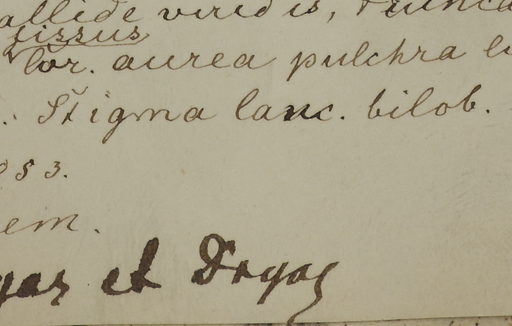 allide viridis, trunca
fissus
lor. aurea pulchra
Stigma lanc. bilob.
53.
em.
et Dryas